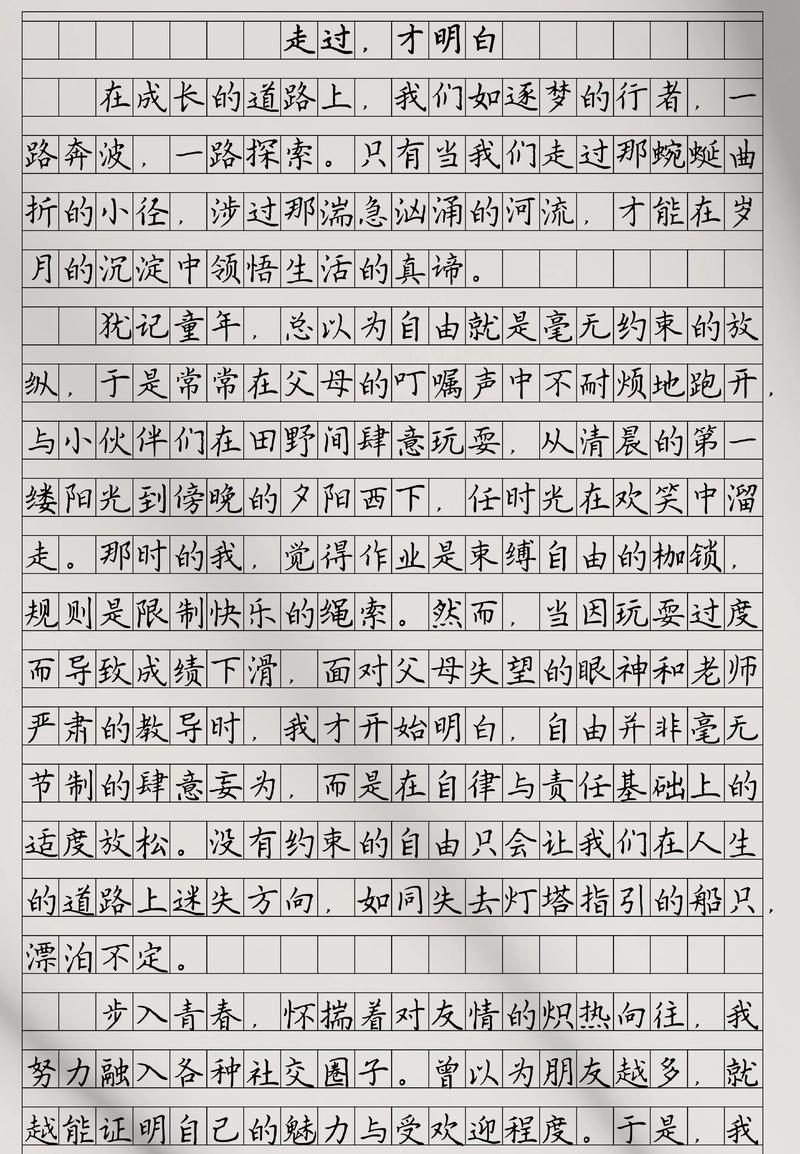 走过，才明白
在成长的道路上，我们如逐梦的行者，一
路奔波，一路探索。只有当我们走过那蜿蜒曲
折的小径，涉过那湍急汹涌的河流，才能在岁
月的沉淀中领悟生活的真谛。
犹记童年，总以为自由就是毫无约束的放
纵，于是常常在父母的叮嘱声中不耐烦地跑开，
与小伙伴们在田野间肆意玩耍，从清晨的第一
缕阳光到傍晚的夕阳西下，任时光在欢笑中溜
走。那时的我，觉得作业是束缚自由的枷锁，
规则是限制快乐的绳索。然而，当因玩耍过度
而导致成绩下滑，面对父母失望的眼神和老师
严肃的教导时，我才开始明白，自由并非毫无
节制的肆意妄为，而是在自律与责任基础上的
适度放松。没有约束的自由只会让我们在人生
的道路上迷失方向，如同失去灯塔指引的船只，
漂泊不定。
步入青春，怀揣着对友情的炽热向往，我
努力融入各种社交圈子。曾以为朋友越多，就
越能证明自己的魅力与受欢迎程度。于是，我